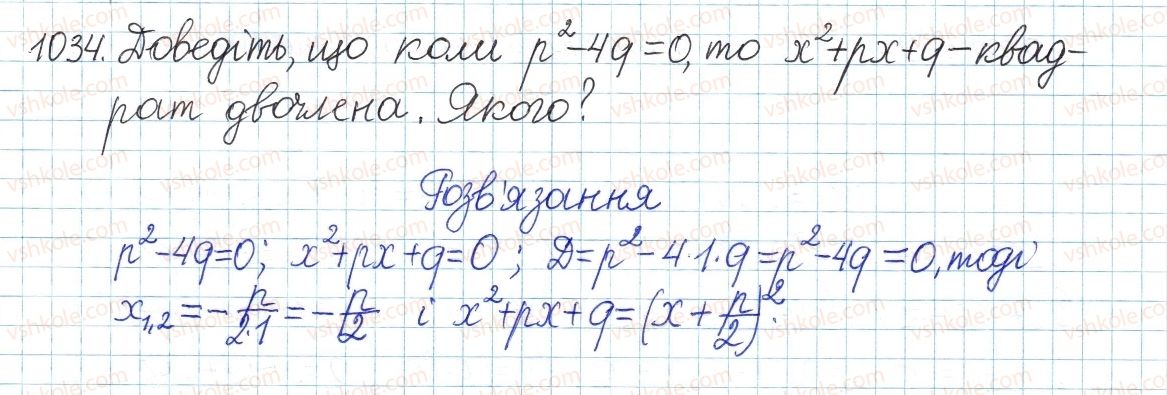 1034. Доведіть, що коли p²-4q=0, то x²+px+q-квад-
рат двочлена. Якого?
Розв'язання
p²-4q=0; x²+px+q=0; D=p²-4·1·q=p²-4q=0, тоді
x₁,₂=-p/2·1=-p/2 і x²+px+q=(x+p/2)².